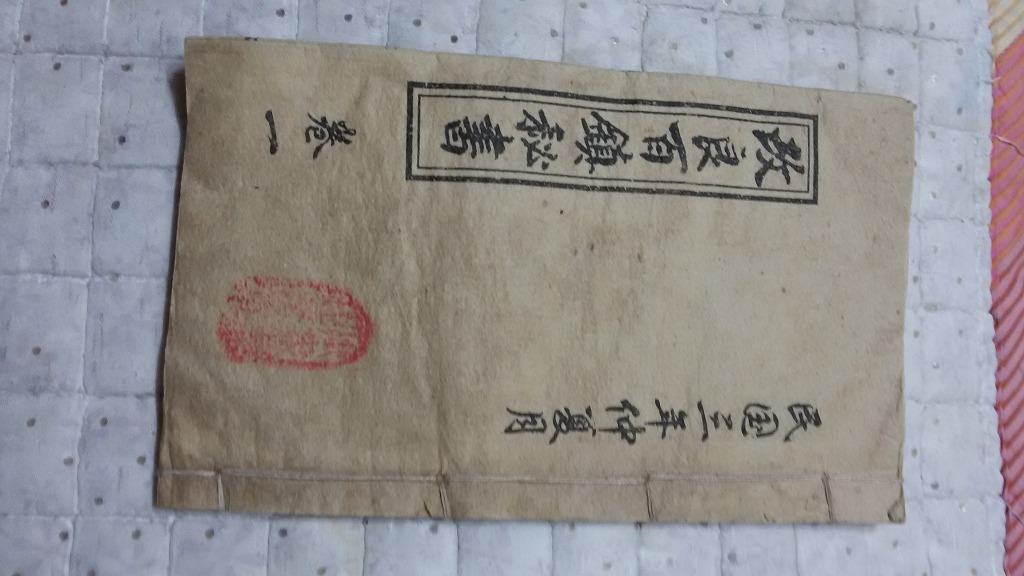 民国三年仲夏月
效良百鎮秘書
卷一